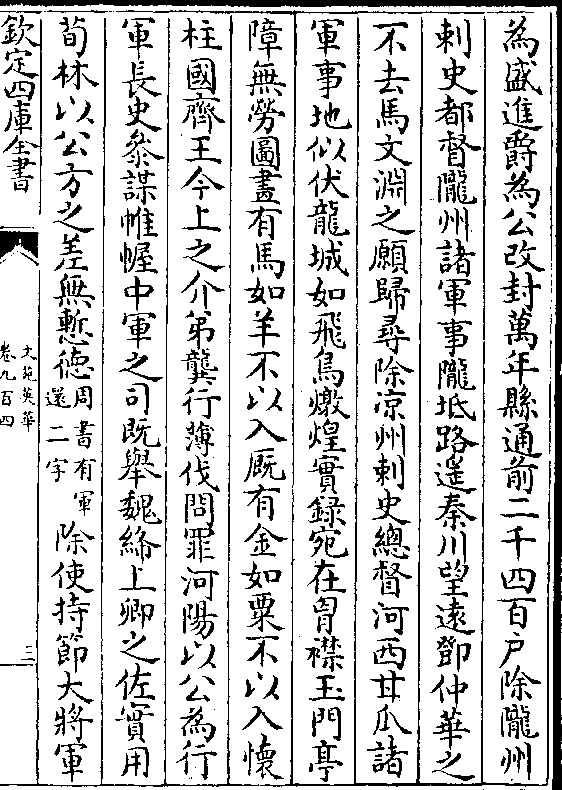 為盛進爵為公改封萬年縣通前二千四百户除隴州
刺史都督隴州諸軍事隴坻路遥秦川望遠鄧仲華之
不去馬文淵之願歸尋除凉州刺史總督河西甘瓜諸
軍事地似伏龍城如飛鳥燉煌實録宛在胷襟玉門亭
障無勞圖畫有馬如羊不以入厩有金如粟不以入懷
柱國齊王今上之介弟龔行薄伐問罪河陽以公為行
軍長史叅謀帷幄中軍之司既舉魏絳上卿之佐實用
荀林以公方之差無慙徳周書有軍還二字除使持節大將軍
欽定四庫全書
文苑英華
卷九百四
三